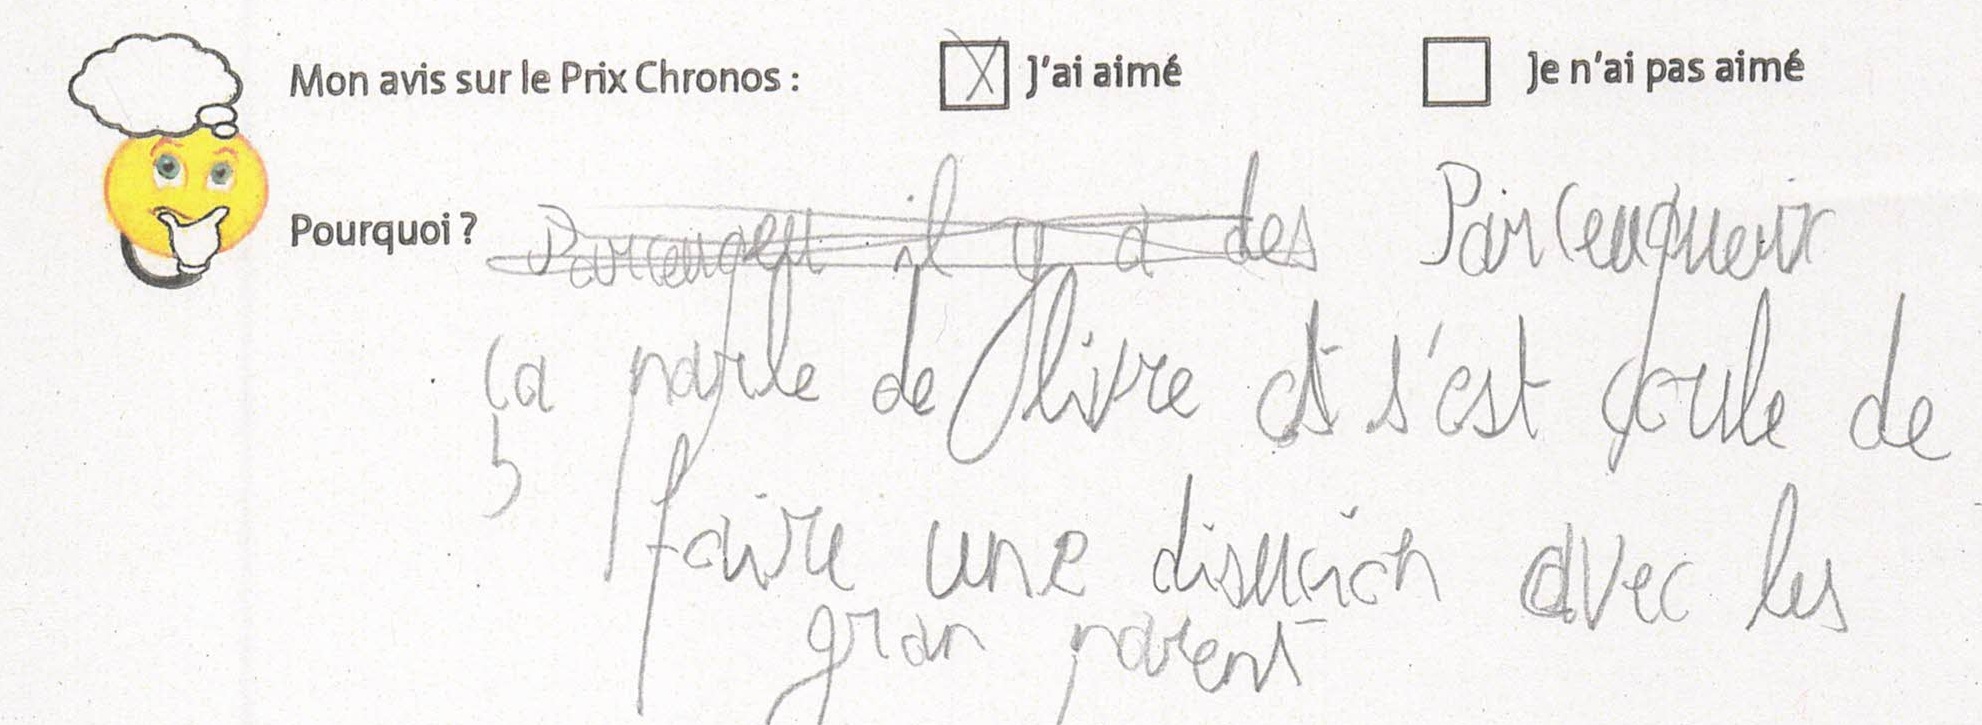 Mon avis sur le Prix Chronos : J'ai aimé Je n'ai pas aimé
Pourquoi ? il y a des
ça parle de livre et s'est coule de
faire une avec les
gran parent